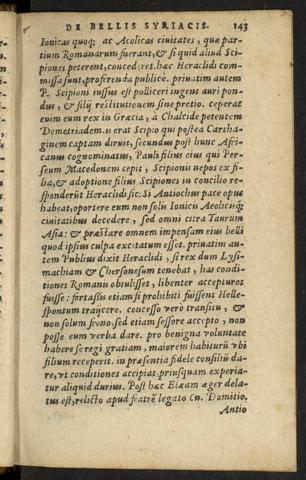 DE BELLIS SYRIACIS. 143
Ionicas quoq; ac Aeolicas ciuitates, quæ par-
tium Romanarum fuerant, & si quid aliud Sci-
piones peterent, concederet. hæc Heraclidi com-
missa sunt, proferenda publicè. priuatim autem
P. Scipioni iussus est polliceri ingens auri pon-
dus, & filij restitutionem sine pretio. ceperat
enim eum rex in Græcia, à Chalcide petentem
Demetriadem. is erat Scipio qui postea Cartha-
ginem captam diruit, secundus post hunc Afri-
canus cognominatus, Pauli filius eius qui Per-
seum Macedonem cepit, Scipionis nepos ex fi-
lia, & adoptione filius Scipiones in concilio re-
sponderūt Heraclidi sic: Si Antiochus pace opus
habeat, oportere eum non solis Ionicis Aeolicisq;
ciuitatibus decedere, sed omni citra Taurum
Asia: & præstare omnem impensam eius belli
quod ipsius culpa excitatum esset. priuatim au-
tem Publius dixit Heraclidi, si rex dum Lysi-
machiam & Chersonesum tenebat, has condi-
tiones Romanis obtulisset, libenter accepturos
fuisse: fortassis etiam si prohibiti fuissent Helle-
spontum traijcere. concesso verò transitu, &
non solum freno, sed etiam sessore accepto, non
posse eum verba dare. pro benigna voluntate
habere se regi gratiam, maiorem habiturū vbi
filium receperit. in præsentia fidele consiliū da-
re, vt conditiones accipiat, priusquam experia-
tur aliquid durius. Post hæc Elæam æger dela-
tus est, relicto apud fratrē legato Cn. Domitio.
Antio